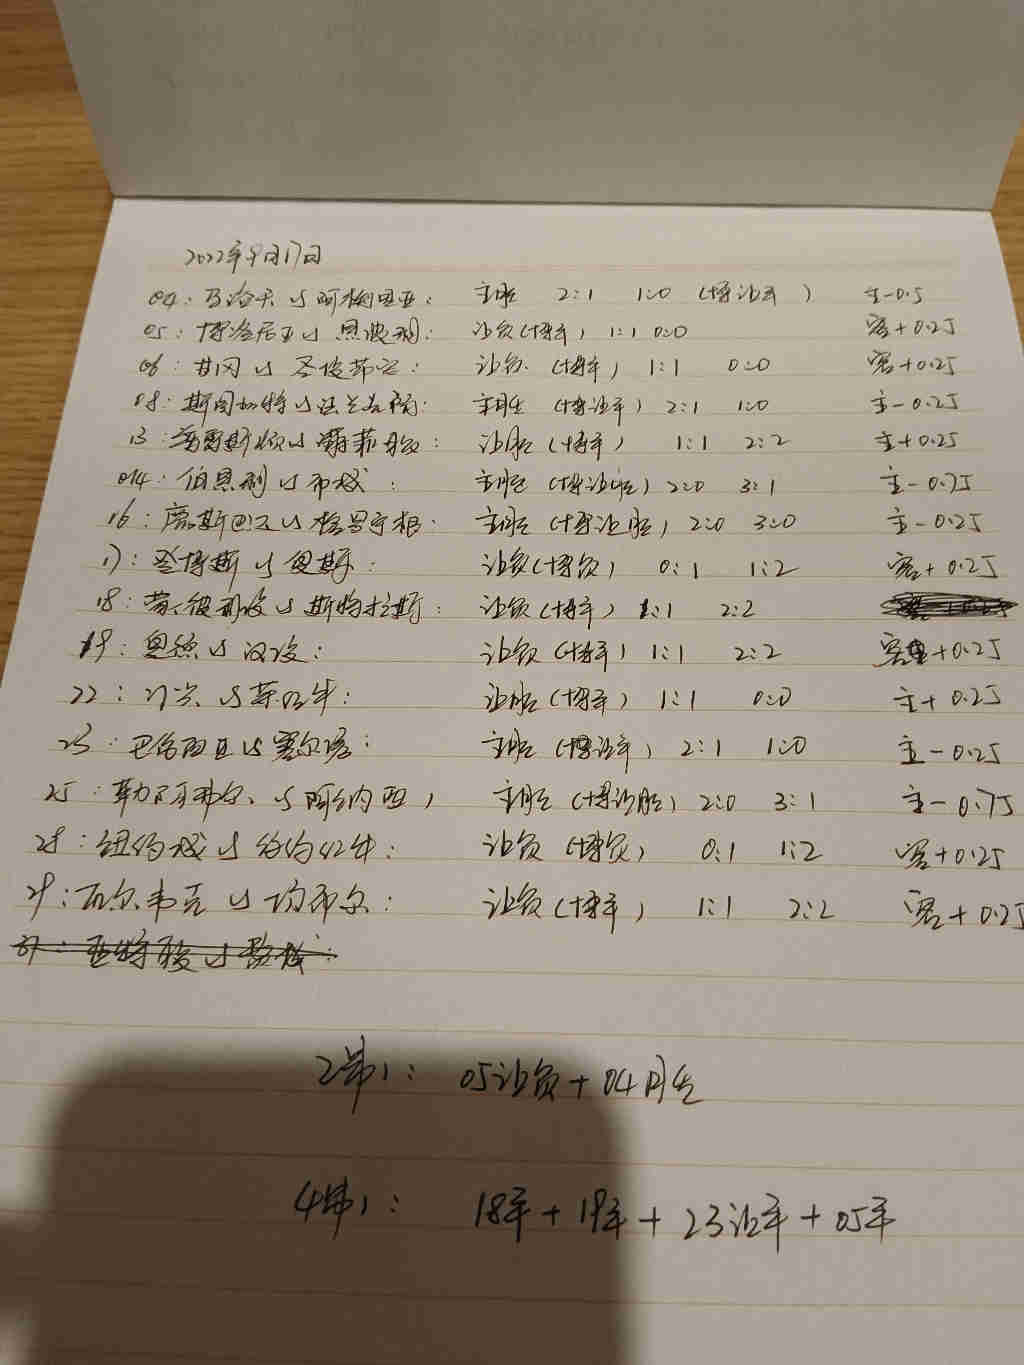 2022年9月17日
04: 马洛卡 vs 阿梅里亚: 主胜 2:1 1:0 (博让平) 主-0.5
05: 博洛尼亚 vs 恩波利: 让负(博平) 1:1 0:0 客+0.25
06: 甘冈 vs 圣埃蒂安: 让负. (博平) 1:1 0:0 客+0.25
08: 斯图加特 vs 法兰克福: 主胜 (博让平) 2:1 1:0 主-0.25
13: vs 谢菲 让胜 (博平) 1:1 2:2 主+0.25
014: 伯恩利 vs 布城: 主胜 (博让胜) 2:0 3:1 主-0.75
16: 鹿斯巴达 vs 格罗宁根: 主胜 (博让胜) 2:0 3:0 主-0.25
17: 圣博斯 vs 奥斯: 让负(博负) 0:1 1:2 客+0.25
18: 蒙彼利埃 vs 斯特拉斯: 让负(博平) 1:1 2:2
19: 奥德 vs 汉坎: 让负 (博平) 1:1 2:2 客+0.25
22: vs 让胜 (博平) 1:1 0:0 主+0.25
23: 巴伦西亚 vs 塞尔塔: 主胜 (博让平) 2:1 1:0 主-0.25
25: 勒阿弗尔 vs 阿纳西: 主胜 (博让胜) 2:0 3:1 主-0.75
28: 纽约城 vs 纽约红牛: 让负 (博负) 0:1 1:2 客+0.25
29: 瓦尔韦克 vs 坎布尔: 让负(博平) 1:1 2:2 客+0.25
2串1: 05让负+04胜
4串1: 18平+19平+23让平+05平